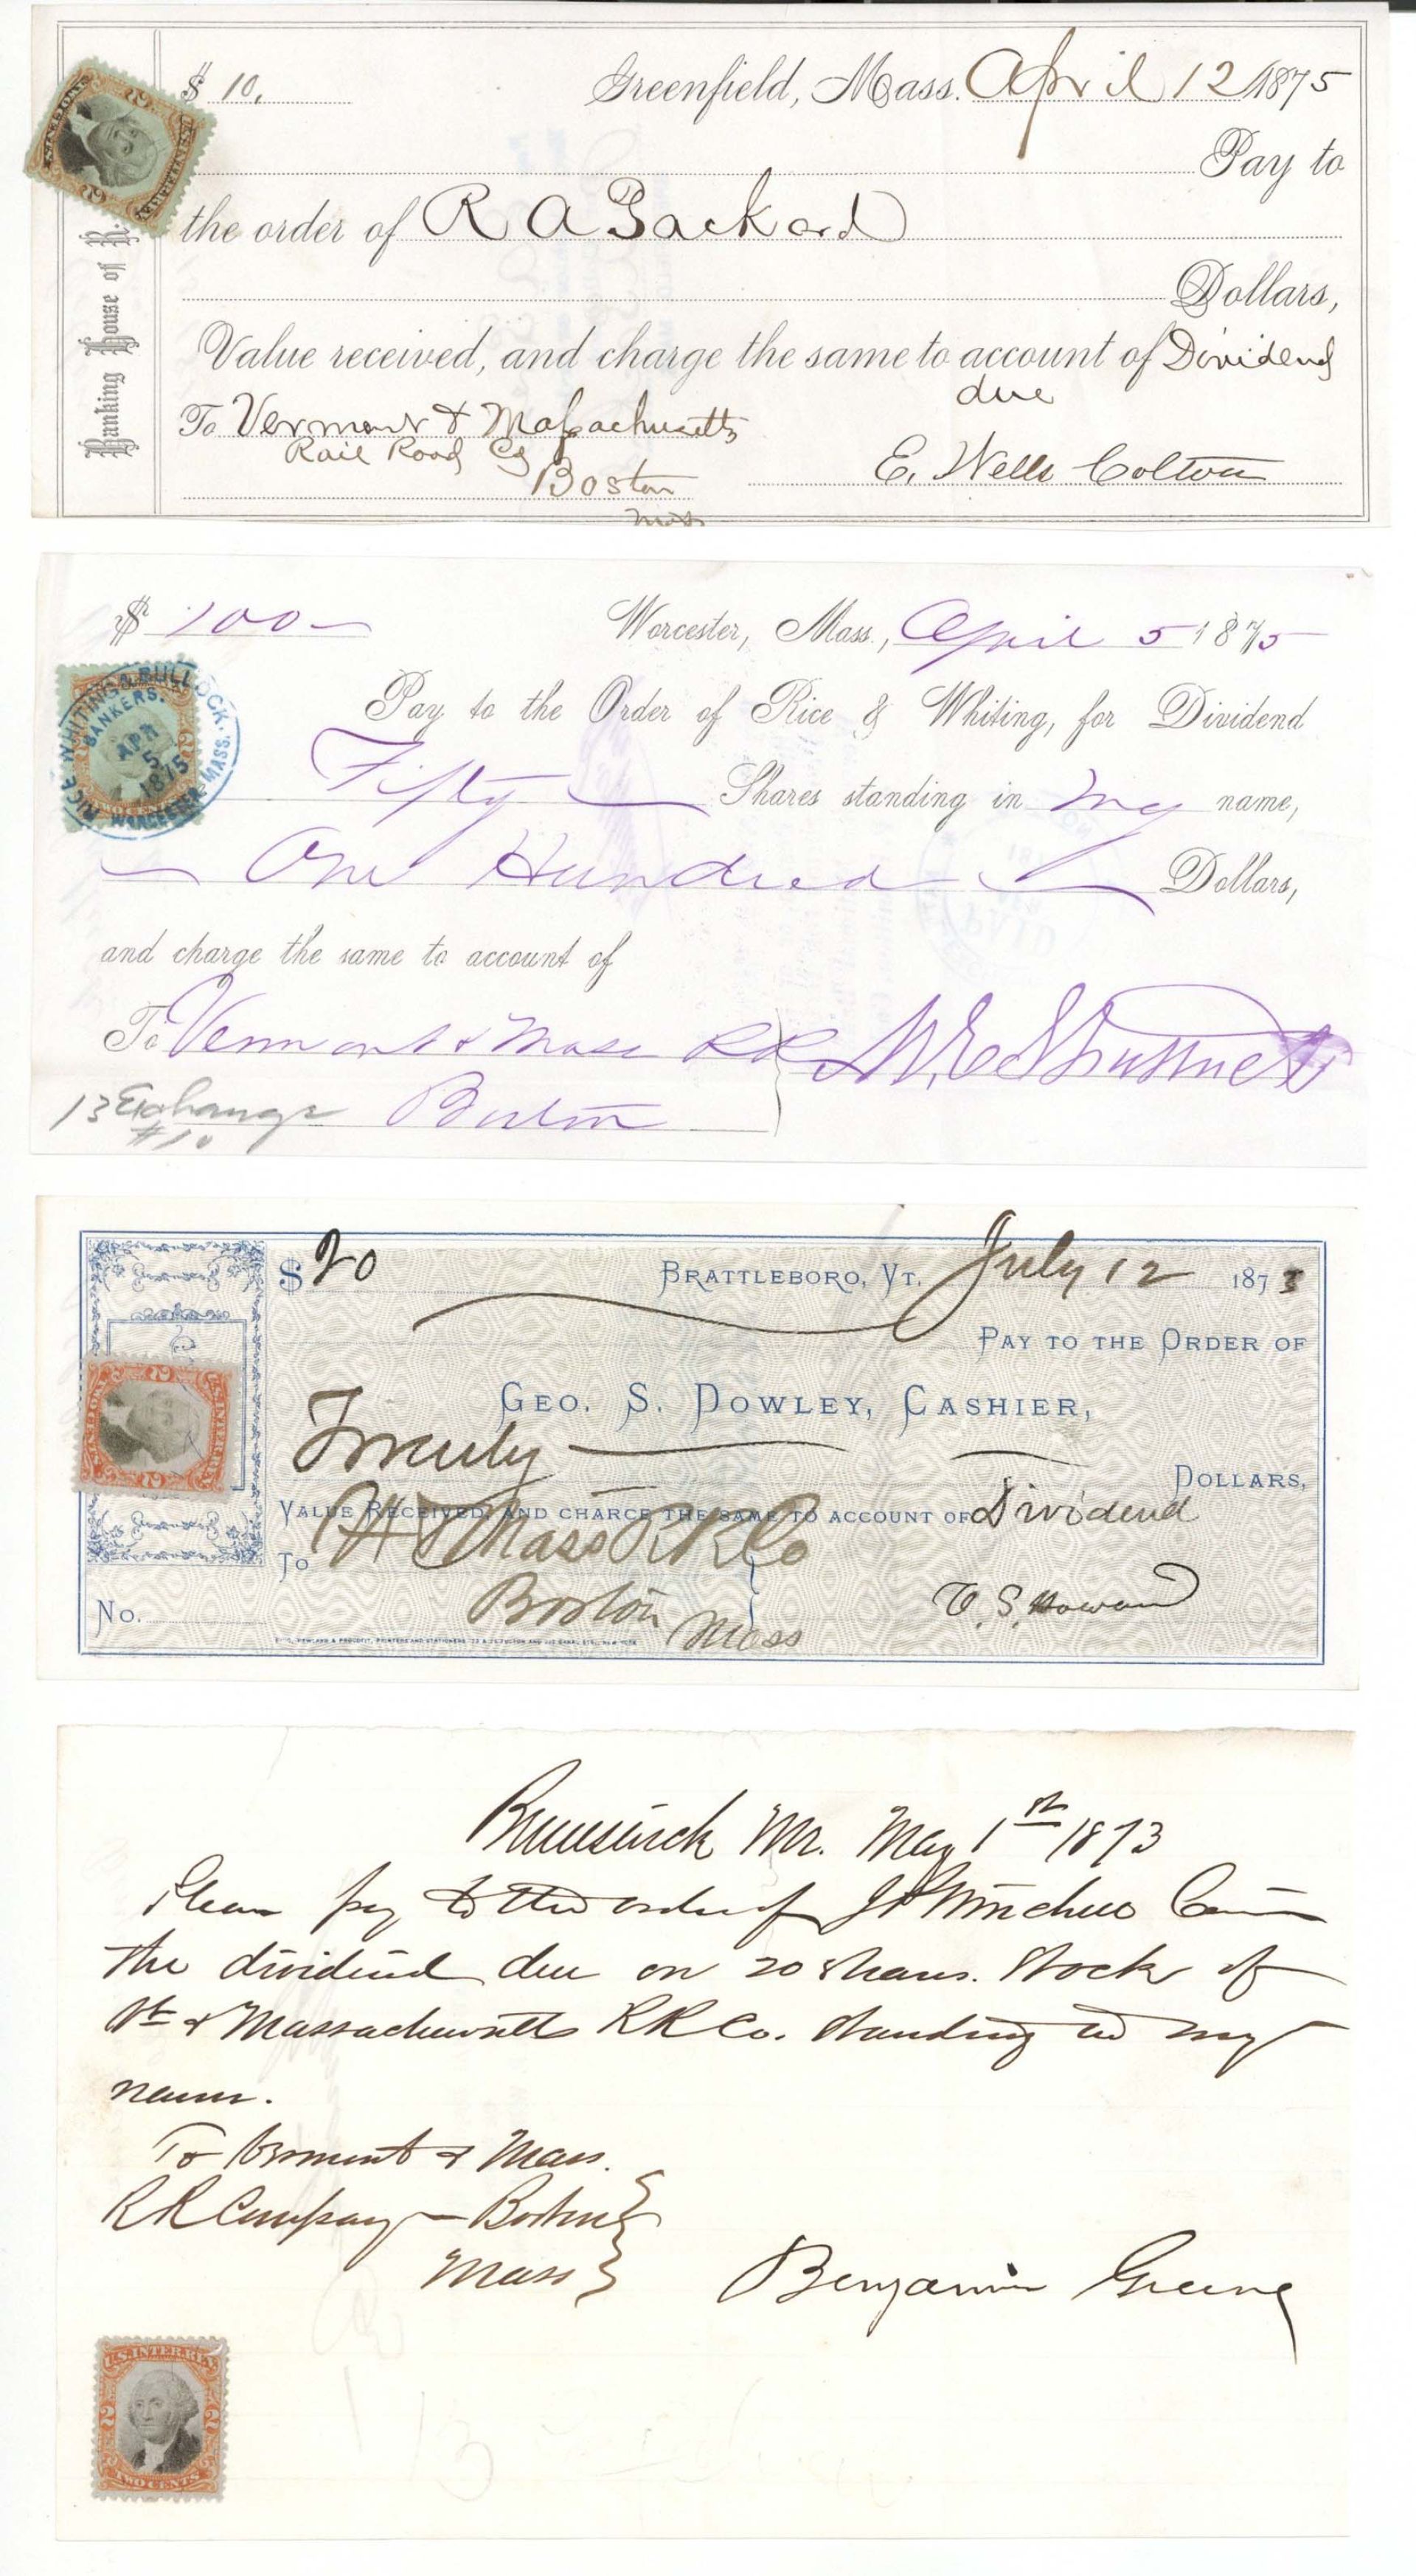 $ 10. Greenfield, Mass. April 12 1875
Pay to
the order of R A Packard
Dollars,
Value received, and charge the same to account of Dividend
due
To Vermont & Massachusetts
Rail Road Co
Boston
Mass
E. Wells Colton
Banking House of R.
U.S. INTER. REV.
$ 100- Worcester, Mass., April 5 1875
Pay to the Order of Rice & Whiting, for Dividend
Fifty Shares standing in my name,
One Hundred Dollars,
and charge the same to account of
To Vermont & Mass RR
13 Exchange Boston
#10
RICE WHITING & BULLOCK.
BANKERS.
APR
5
1875
WORCESTER MASS.
TWO CENTS
$ 20 BRATTLEBORO, VT. July 12 1873
PAY TO THE ORDER OF
GEO. S. DOWLEY, CASHIER,
Twenty
DOLLARS,
VALUE RECEIVED, AND CHARGE THE SAME TO ACCOUNT OF Dividend
To Vt & Mass RR Co
Boston
Mass
No.
Brunswick Me. May 1st 1873
Please pay to the order of
the dividend due on 20 shares. Stock of
Vt & Massachusetts RR Co. standing in my
name.
To Vermont & Mass.
RR Company - Boston
Mass
Benjamin Greene
U.S. INTER. REV.
2 2
TWO CENTS